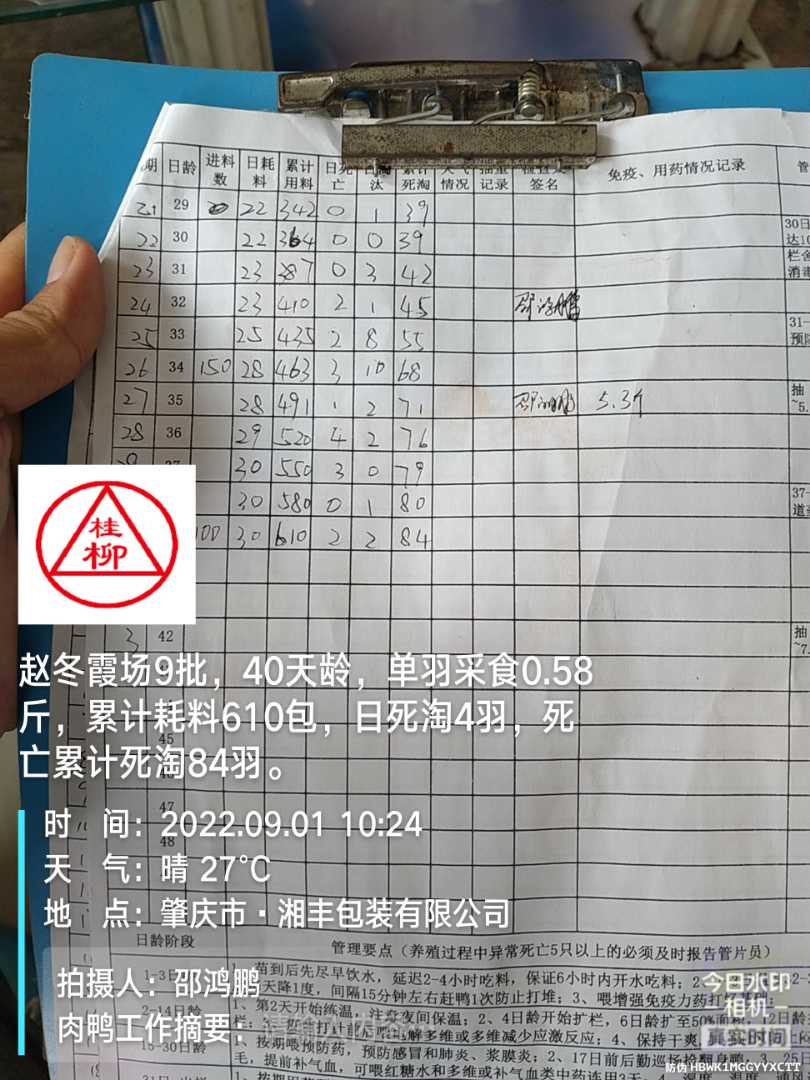 期 日龄 进料数 日耗料 累计用料 日死亡 日淘汰 累计死淘 天气情况 抽重记录 检查人签名 免疫、用药情况记录 管
21 29 22 342 0 1 39
22 30 22 364 0 0 39
30日
达10
栏舍
消毒
23 31 23 387 0 3 42
24 32 23 410 2 1 45 邵鸿鹏
25 33 25 435 2 8 55
31-
预防
26 34 150 28 463 3 10 68
27 35 28 491 1 2 71 邵鸿鹏 5.3斤
抽
~5.
28 36 29 520 4 2 76
29 37 30 550 3 0 79
30 580 0 1 80
37-
道
100 30 610 2 2 84
桂柳
3 42
抽
~7.
赵冬霞场9批，40天龄，单羽采食0.58
斤，累计耗料610包，日死淘4羽，死
亡累计死淘84羽。
45
47
48
时 间：2022.09.01 10:24
天 气：晴 27℃
地 点：肇庆市·湘丰包装有限公司
日龄阶段 管理要点（养殖过程中异常死亡5只以上的必须及时报告管片员）
拍摄人：邵鸿鹏
肉鸭工作摘要：
1-3日
1、苗到后先尽早饮水，延迟2-4小时吃料，保证6小时内开水吃料；2、
天降1度，间隔15分钟左右赶鸭1次防止打堆；3、喂增强免疫力药
2-14日龄
1、第2天开始练温，注意夜间保温；2、4日龄开始扩栏，6日龄扩至50%面积，12日龄
电解多维或多维减少应激反应；4、保持干爽
15-30日龄
1、按期喂预防药，预防感冒和肺炎、浆膜炎；2、17日前后勤巡场捡翻身鸭，3、25
毛，提前补气血，可喂红糖水和多维或补气血类中药连用3天
今日水印
相机
真实时间
防伪 HBWK1MGGYYXCTT